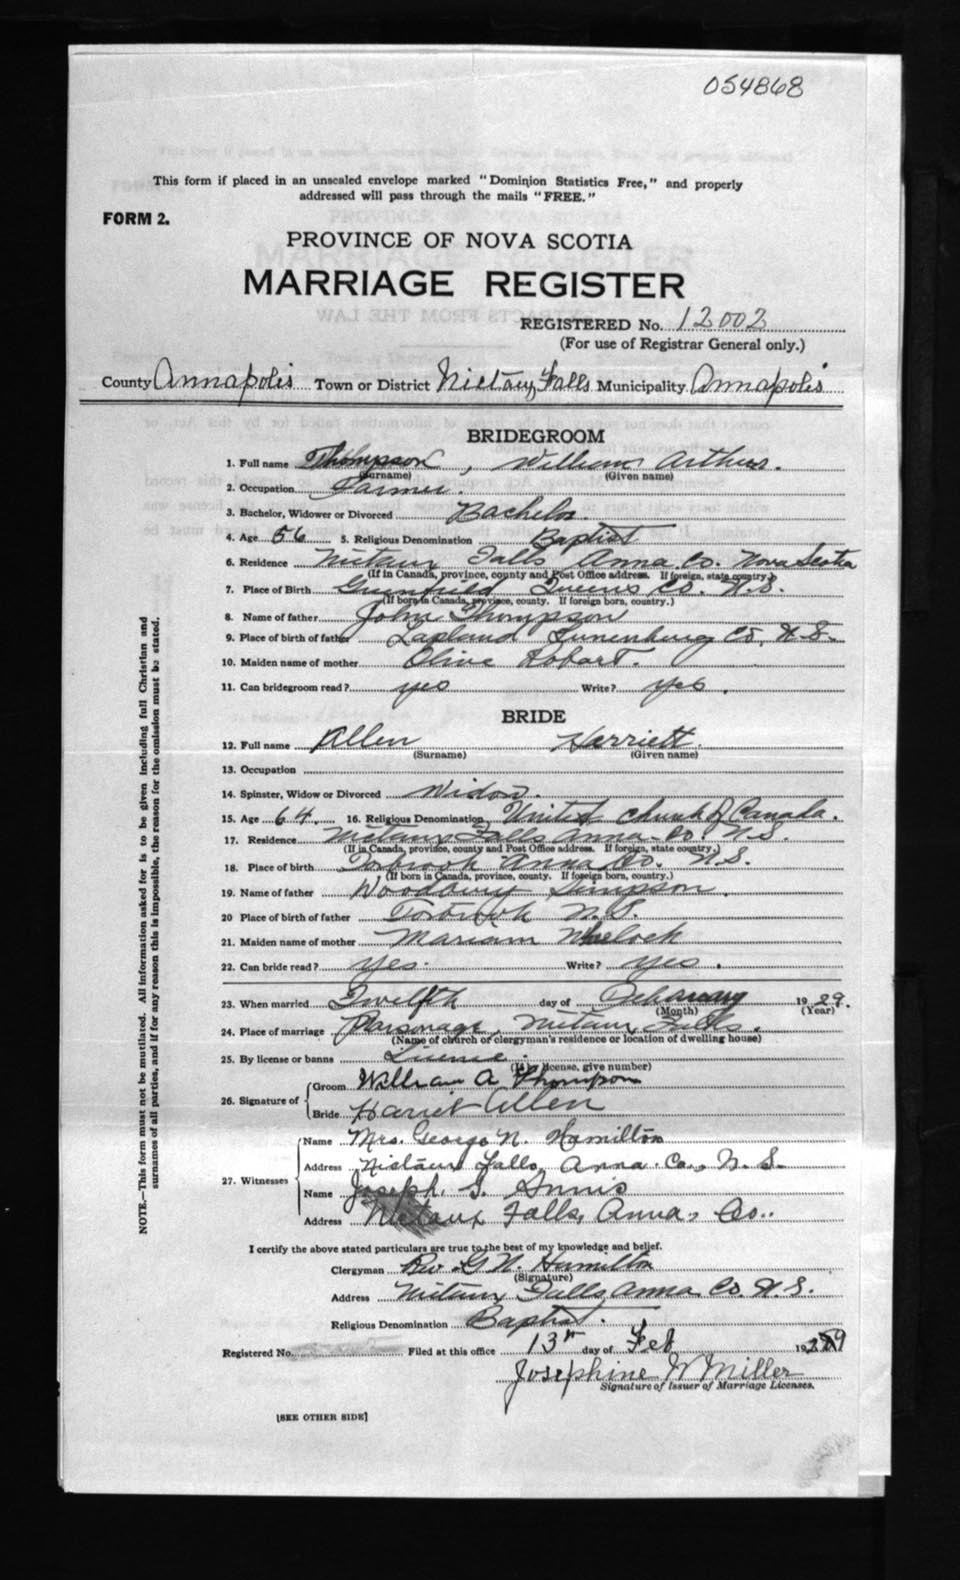 054868
This form if placed in an unsealed envelope marked "Dominion Statistics Free," and properly
addressed will pass through the mails "FREE."
FORM 2.
PROVINCE OF NOVA SCOTIA
MARRIAGE REGISTER
REGISTERED No. 12002
(For use of Registrar General only.)
County Annapolis Town or District Nictaux Falls Municipality Annapolis
BRIDEGROOM
1. Full name Thompson, William Arthur.
(Surname) (Given name)
2. Occupation Farmer.
3. Bachelor, Widower or Divorced Bachelor.
4. Age 56 5. Religious Denomination Baptist
6. Residence Nictaux Falls Anna Co. Nova Scotia
(If in Canada, province, county and Post Office address. If foreign, state country.)
7. Place of Birth Greenfield Queens Co. N.S.
(If born in Canada, province, county. If foreign born, country.)
8. Name of father John Thompson
9. Place of birth of father Lapland Lunenburg Co, N.S.
10. Maiden name of mother Olive Robart.
11. Can bridegroom read? yes Write? yes.
BRIDE
12. Full name Allen Harriett.
(Surname) (Given name)
13. Occupation
14. Spinster, Widow or Divorced Widow.
15. Age 64. 16. Religious Denomination United Church of Canada.
17. Residence Nictaux Falls Anna Co. N.S.
(If in Canada, province, county and Post Office address. If foreign, state country.)
18. Place of birth Torbrook Anna Co. N.S.
(If born in Canada, province, county. If foreign born, country.)
19. Name of father Woodbury Simpson.
20 Place of birth of father Torbrook N.S.
21. Maiden name of mother Mariam Wheelock
22. Can bride read? yes. Write? yes.
23. When married Twelfth day of February 1929.
(Month) (Year)
24. Place of marriage Parsonage, Nictaux Falls.
(Name of church or clergyman's residence or location of dwelling house)
25. By license or banns License.
(If by license, give number)
26. Signature of Groom William A Thompson
Bride Harriet Allen
27. Witnesses
Name Mrs. George N. Hamilton
Address Nictaux Falls, Anna. Co., N.S.
Name Joseph S. Annis
Address Nictaux Falls, Anna, Co..
I certify the above stated particulars are true to the best of my knowledge and belief.
Clergyman Rev. G N. Hamilton
(Signature)
Address Nictaux Falls, Anna Co. N.S.
Religious Denomination Baptist.
Registered No. Filed at this office 13th day of Feb 1929
Josephine W Miller
Signature of Issuer of Marriage Licenses.
[SEE OTHER SIDE]
NOTE.—This form must not be mutilated. All information asked for is to be given including full Christian and
surnames of all parties, and if for any reason this is impossible, the reason for the omission must be stated.